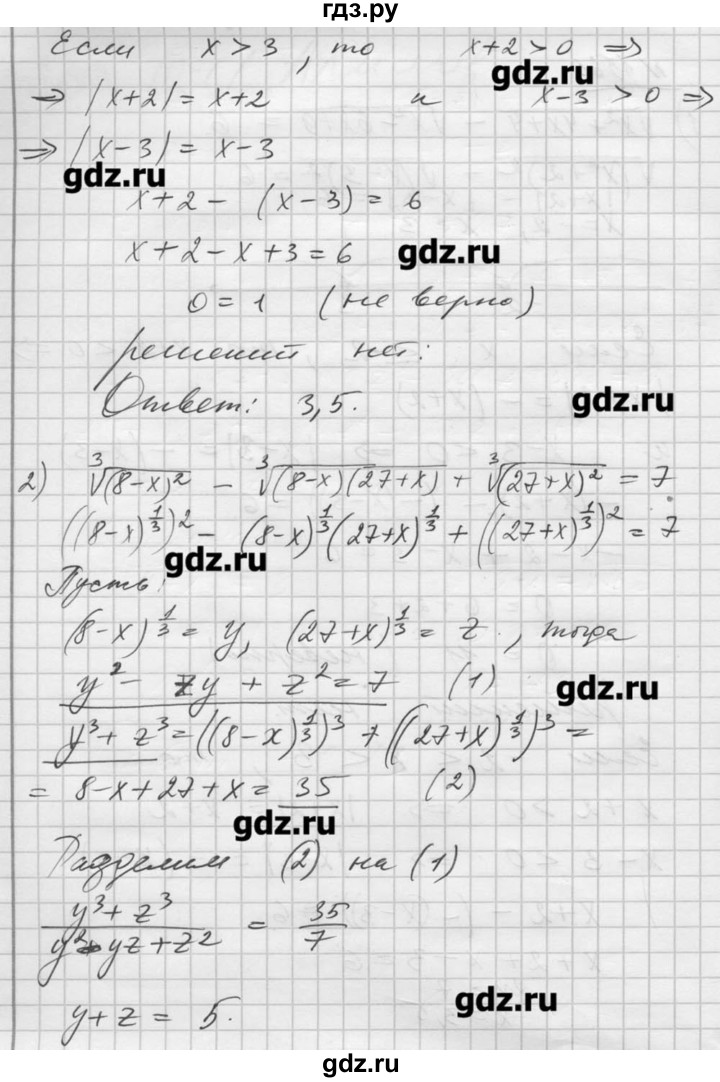 гдз.ру
Если x > 3, то x+2 > 0 ⇒
⇒ |x+2| = x+2 и x-3 > 0 ⇒
gdz.ru
⇒ |x-3| = x-3
gdz.ru
x+2 - (x-3) = 6
x+2-x+3=6
gdz.ru
0=1 (не верно)
решений нет.
Ответ: 3,5.
gdz.ru
2) ∛(8-x)² - ∛(8-x)(27+x) + ∛(27+x)² = 7
((8-x)^(1/3))² - (8-x)^(1/3)(27+x)^(1/3) + ((27+x)^(1/3))² = 7
gdz.ru
Пусть:
(8-x)^(1/3) = y, (27+x)^(1/3) = z, тогда
y² - zy + z² = 7 (1)
gdz.ru
y³ + z³ = ((8-x)^(1/3))³ + ((27+x)^(1/3))³ =
= 8-x+27+x = 35 (2)
gdz.ru
Разделим (2) на (1)
(y³+z³)/(y²-yz+z²) = 35/7
gdz.ru
y+z = 5.
gdz.ru